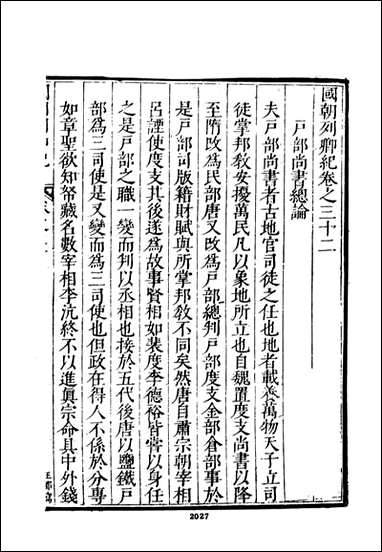 國朝列卿紀卷之三十二
戶部尚書總論
夫戶部尚書者古地官司徒之任也地者載養萬物天子立司
徒掌邦敎安擾萬民凡以象地所立也自魏置度支尚書以降
至隋改爲民部唐又改爲戶部總判戶部度支金部倉部事於
是戶部司版籍財賦與所掌邦敎不同矣然唐自肅宗朝宰相
呂諲使度支其後遂爲故事賢相如裴度李德裕皆嘗以身任
之是戶部之職一變而判以丞相也接於五代後唐以鹽鐵戶
部爲三司使是又變而爲三司使也但政在得人不係於分專
如章聖欲知帑藏名數宰相李沆終不以進眞宗命具中外錢
2027